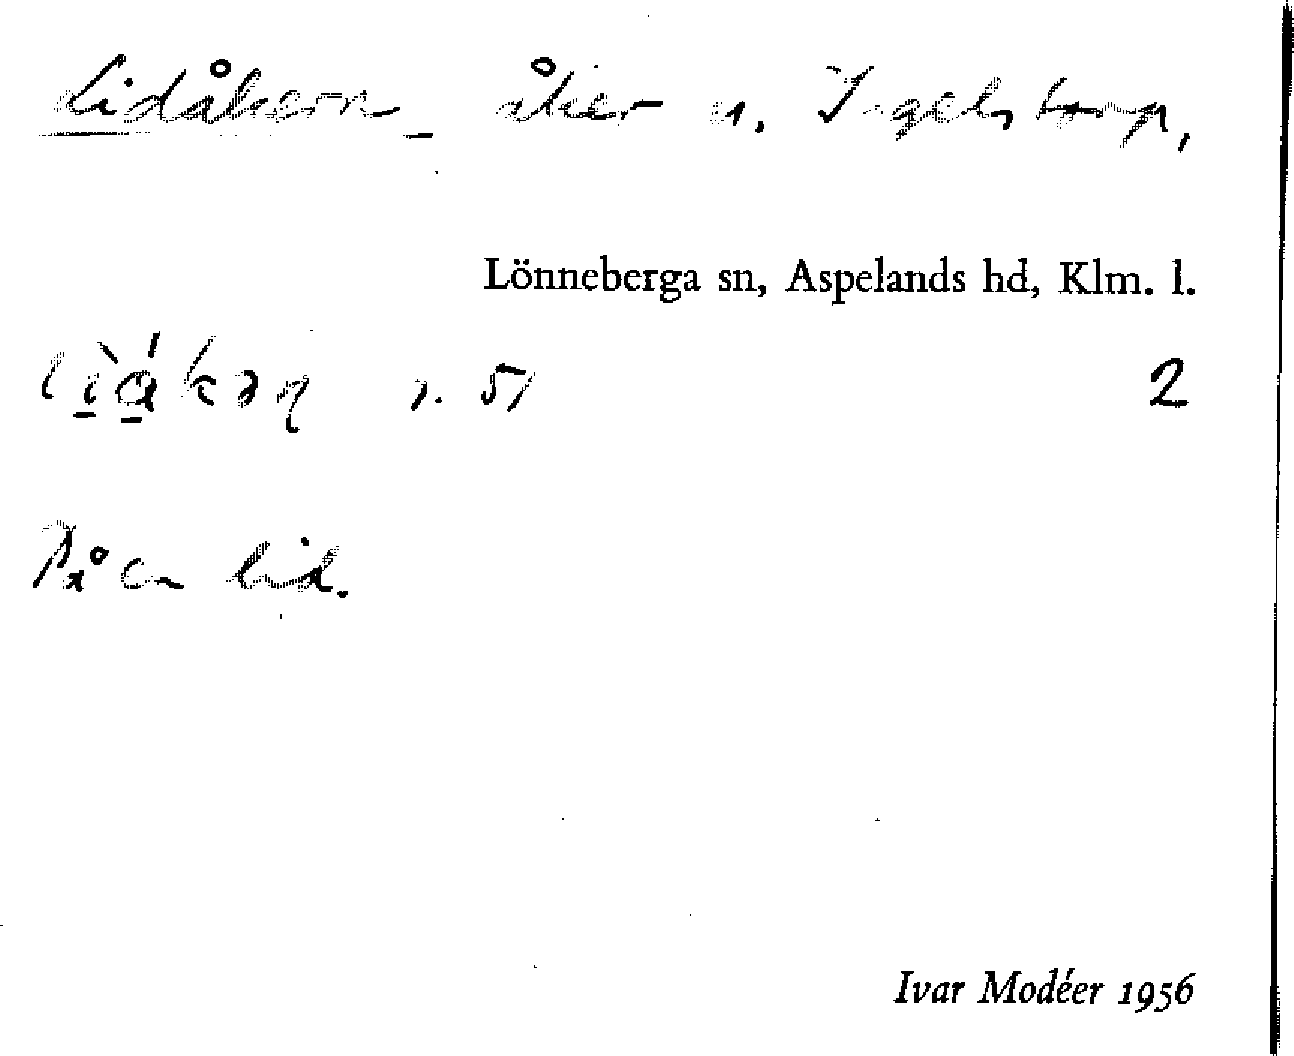 Lidåkern åker u. Ingelstorp,
Lönneberga sn, Aspelands hd, Klm. l.
2
På en lid.
Ivar Modéer 1956